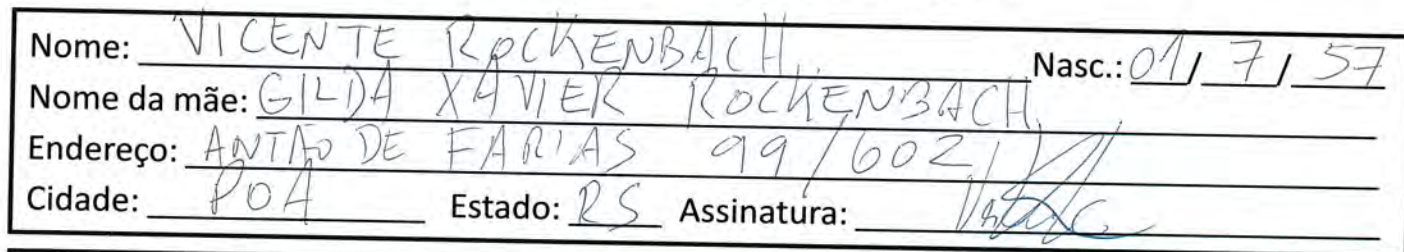 Nome: VICENTE ROCKENBACH Nasc.: 01/ 7 / 57
Nome da mãe: GILDA XAVIER ROCKENBACH
Endereço: ANTÃO DE FARIAS 99/602
Cidade: POA Estado: RS Assinatura: